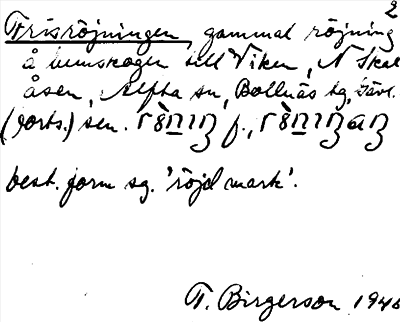 2
Frisröjningen, gammal röjning
å hemskogen till Viken, N Skal
åsen, Alfta sn, Bollnäs tg, Gävl.
(forts.) sen. f.,
best. form sg. 'röjd mark'.
T. Birgerson 1946